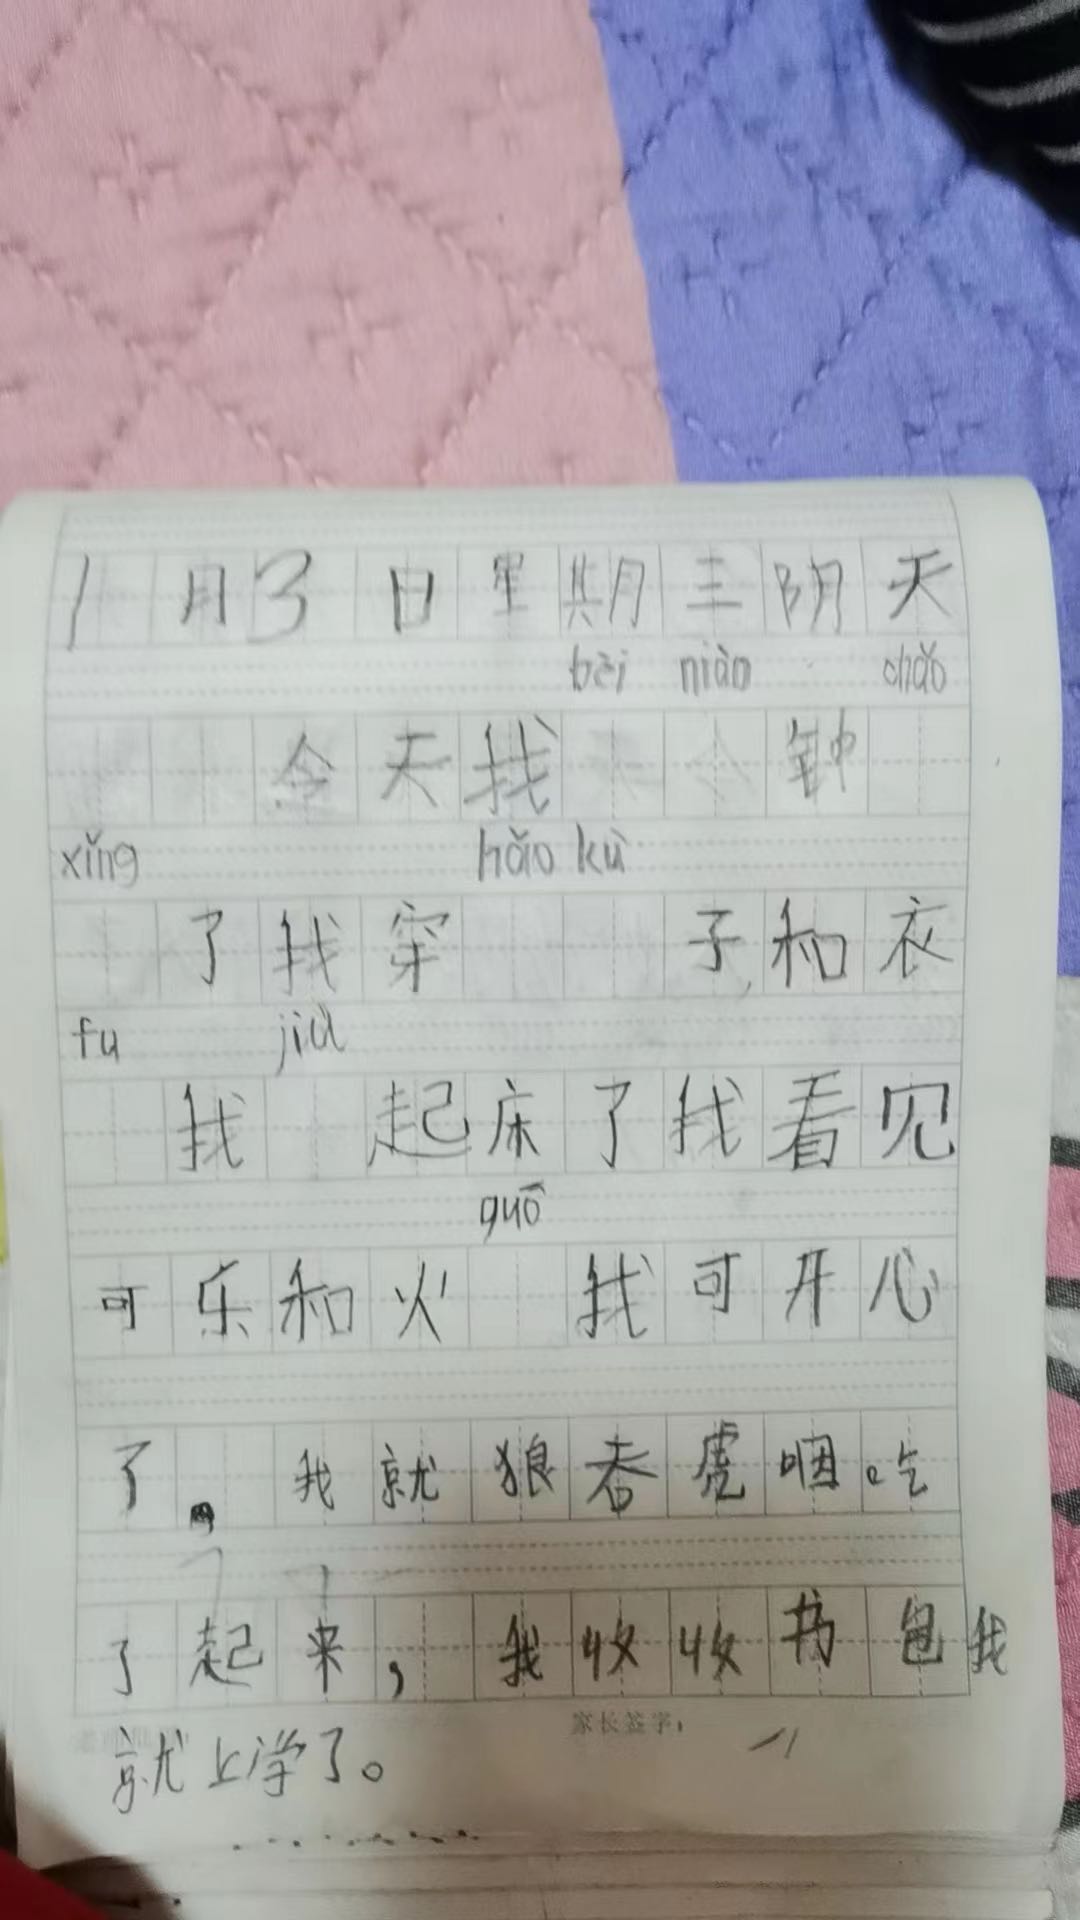 1月3日星期三阴天
bèi niào chǎo
今天我 钟
xǐng hǎo kù
了我穿 子和衣
fu jiù
我 起床了我看见
guǒ
可乐和火 我可开心
了。我就狼吞虎咽吃
了起来，我收收书包我
家长签字：
就上学了。